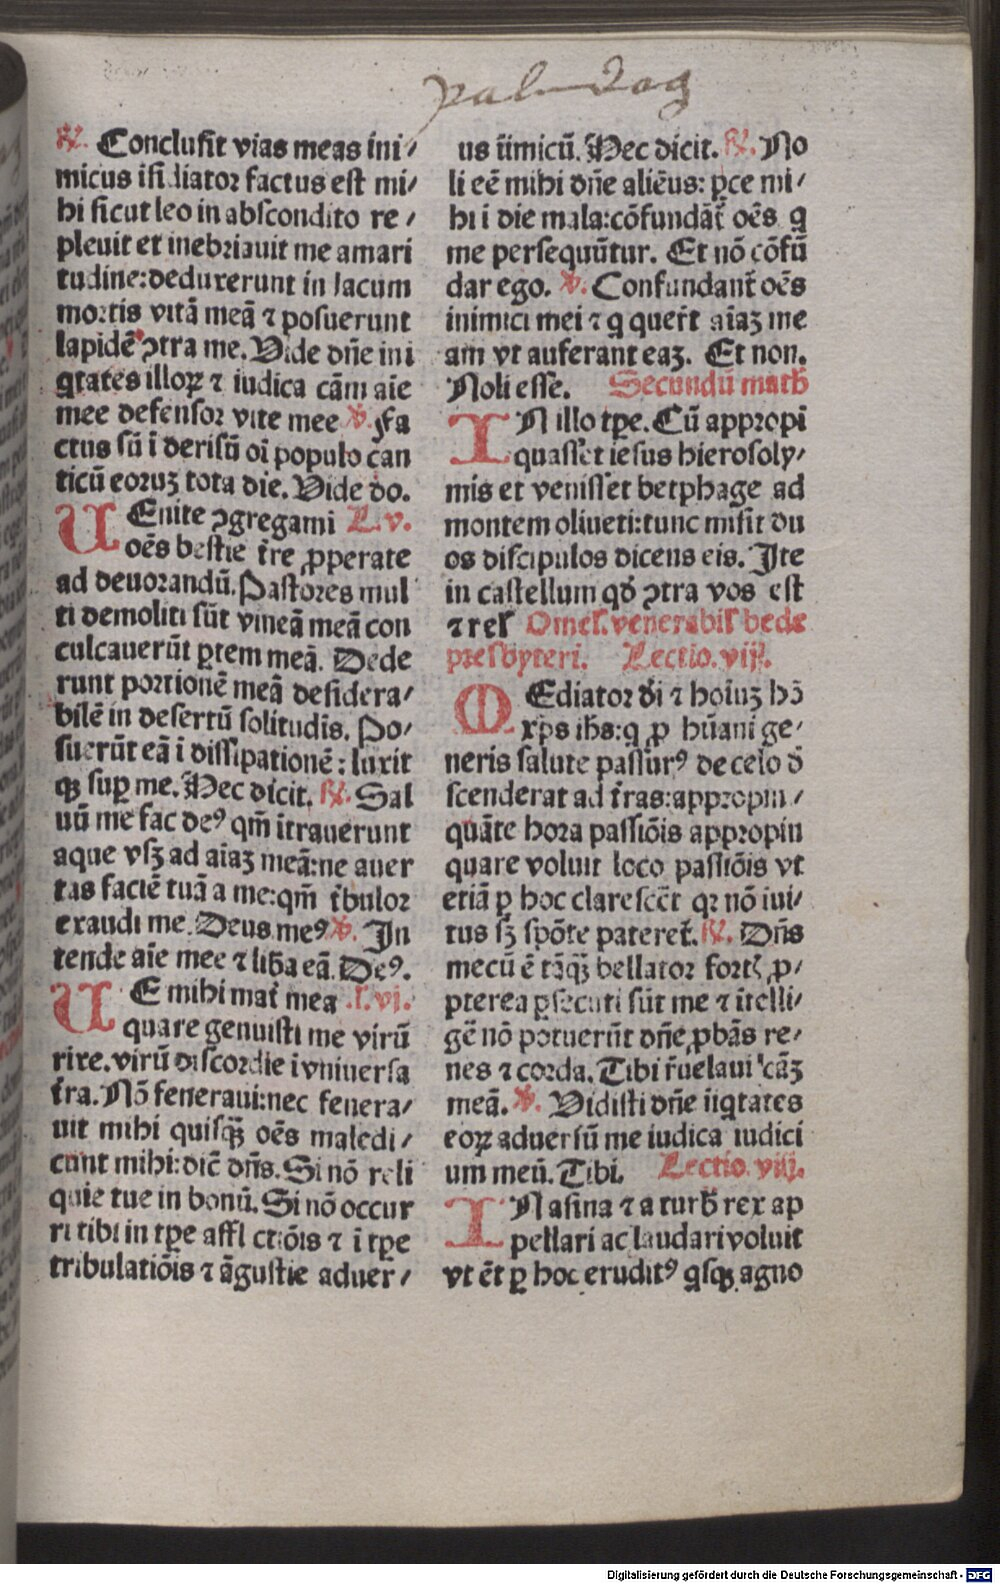 palmdag
℟. Conclusit vias meas ini⸗
micus isidiator factus est mi⸗
hi sicut leo in abscondito re⸗
pleuit et inebriauit me amari
tudine:deduxerunt in lacum
mortis vitā meā ⁊ posuerunt
lapidē ꝯtra me. Vide dn̄e ini
qtates illoꝝ ⁊ iudica cām aīe
mee defensor vite mee ℣. Fa
ctus sū ī derisū oī populo can
ticū eoruꝫ tota die. Vide do.
UEnite ꝯgregami L. v.
oēs bestie t̄re ꝓperate
ad deuorandū. Pastores mul
ti demoliti sūt vineā meā con
culcauerūt ꝑtem meā. Dede
runt portionē meā desidera⸗
bilē in desertū solitudīs. Po⸗
suerūt eā i dissipationē: luxit
qꝫ suꝑ me. Nec dicit. ℟. Sal
uū me fac deꝰ qm̄ ītrauerunt
aque vsqꝫ ad aīaꝫ meā:ne auer
tas faciē tuā a me:qm̄ t̄bulor
exaudi me. Deus meꝰ ℣. In
tende aīe mee ⁊ lib̄a eā. Deꝰ.
UE mihi mat̄ mea .l. vj.
quare genuisti me virū
rixe. virū discordie i vniuersa
t̄ra. Nō feneraui:nec fenera⸗
uit mihi quisqꝫ̄ oēs maledi⸗
cunt mihi:dic̄ dn̄s. Si nō reli
quie tue in bonū. Si nō occur
ri tibi in tꝑe affl ctiōis ⁊ i tꝑe
tribulatiōis ⁊ āgustie aduer⸗
us īimicū. Nec dicit. ℟. No
li eē mihi dn̄e aliēus: ꝑce mi⸗
hi i die mala:cōfundāt̄ oēs q
me persequūtur. Et nō cōfū
dar ego. ℣. Confundant̄ oēs
inimici mei ⁊ q quer̄t aīaꝫ me
am vt auferant eaꝫ. Et non.
Noli esse. Secundū math̄
IN illo tꝑe. Cū appropī
quass̄et iesus hierosoly⸗
mis et venisset betphage ad
montem oliueti:tunc misit du
os discipulos dicens eis. Ite
in castellum qd̄ ꝯtra vos est
⁊ rel̄ Omel̄. venerabil̄ bede
presbyteri. Lectio. vij.
MEdiator d̄i ⁊ hoīuꝫ hō
xp̄s ih̄s:q ꝓ hūani ge⸗
neris salute passurꝰ de celo d̄
scenderat ad t̄ras:appropin⸗
quāte hora passiōis appropin
quare voluit loco passiōis vt
etiā ꝑ hoc claresc̄et qꝛ nō iui⸗
tus sꝫ spōte pateret̄. ℟. Dn̄s
mecū ē tāqꝫ̄ bellator fortꝭ ꝓ⸗
pterea ꝑsecuti sūt me ⁊ ītelli⸗
gē nō potuerūt dn̄e ꝓbās re⸗
nes ⁊ corda. Tibi r̄uelaui cāꝫ
meā. ℣. Vidisti dn̄e iiqtates
eoꝝ aduersū me iudica iudici
um meū. Tibi. Lectio. viij.
IN asina ⁊ a turb̄ rex ap
pellari ac laudari voluit
vt ēt ꝑ hoc eruditꝰ qsqꝫ agno
Digitalisierung gefördert durch die Deutsche Forschungsgemeinschaft - DFG